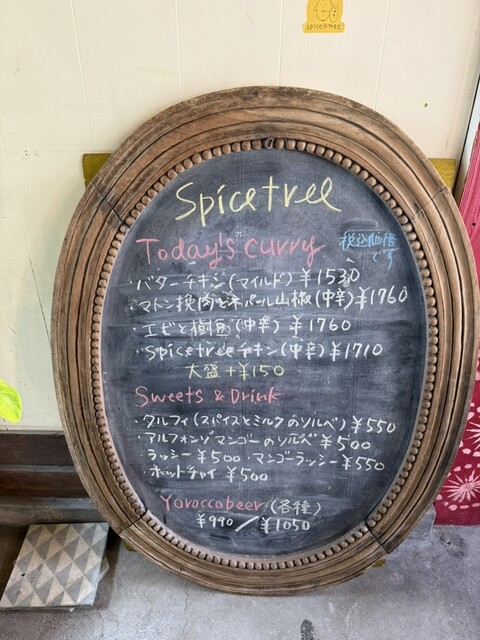 spice tree
Spicetree
Today's curry 税込価格です
・バターチキン(マイルド) ¥1530
・マトン挽肉とネパール山椒(中辛) ¥1760
・エビと樹園(中辛) ¥1760
・Spicetreeチキン(中辛) ¥1710
大盛 +¥150
Sweets & Drink
・クルフィ(スパイスとミルクのソルベ) ¥550
・アルフォンゾマンゴーのソルベ ¥500
・ラッシー ¥500 ・マンゴーラッシー ¥550
・ホットチャイ ¥500
Yoroccobeer(各種)
¥990/¥1050